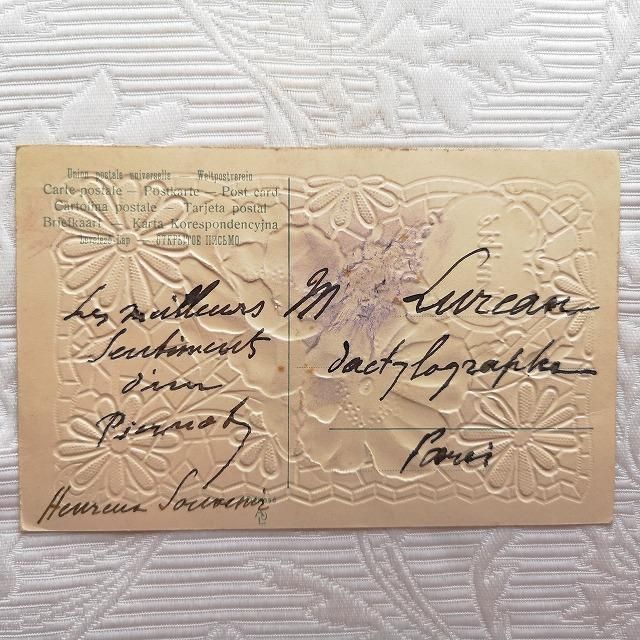 Union postale universelle — Weltpostverein
Carte postale — Postkarte — Post card
Cartolina postale — Tarjeta postal
Briefkaart — Karta Korespondencyjna
Levelező-Lap — ОТКРЫТОЕ ПИСЬМО
Les meilleurs
Sentiments
d'un
Heureux Souvenir
M Lurcan
dactylographe
Paris